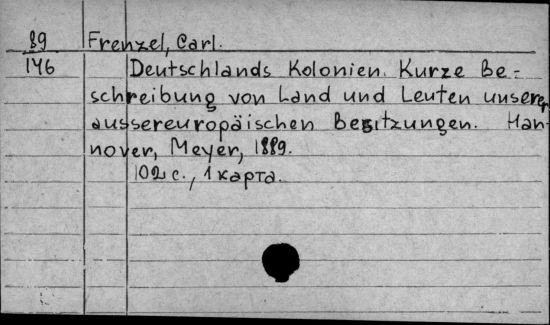 89 Frenzel, Carl.
146 Deutschlands Kolonien. Kurze Be-
schreibung von Land und Leuten unserer
aussereuropäischen Besitzungen. Han-
nover, Meyer, 1889.
102 с., 1 карта.